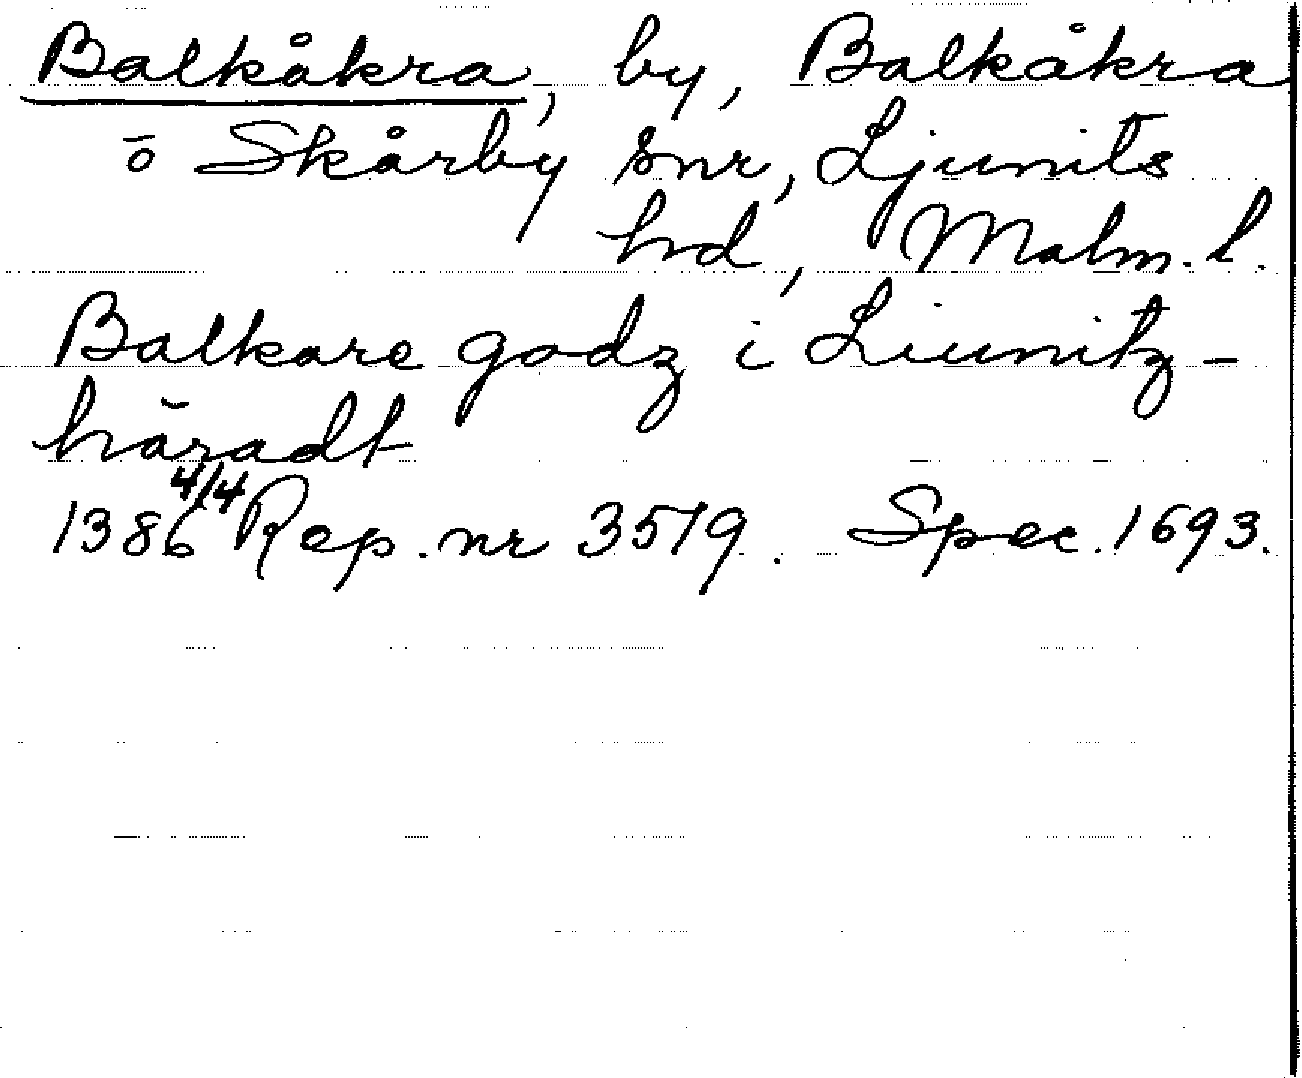 Balkåkra, by, Balkåkra
ö Skårby snr, Ljunits
hd, Malm. l.
Balkare godz i Liunitz-
häradt
1386 4/4 Rep. nr 3519. Spec. 1693.